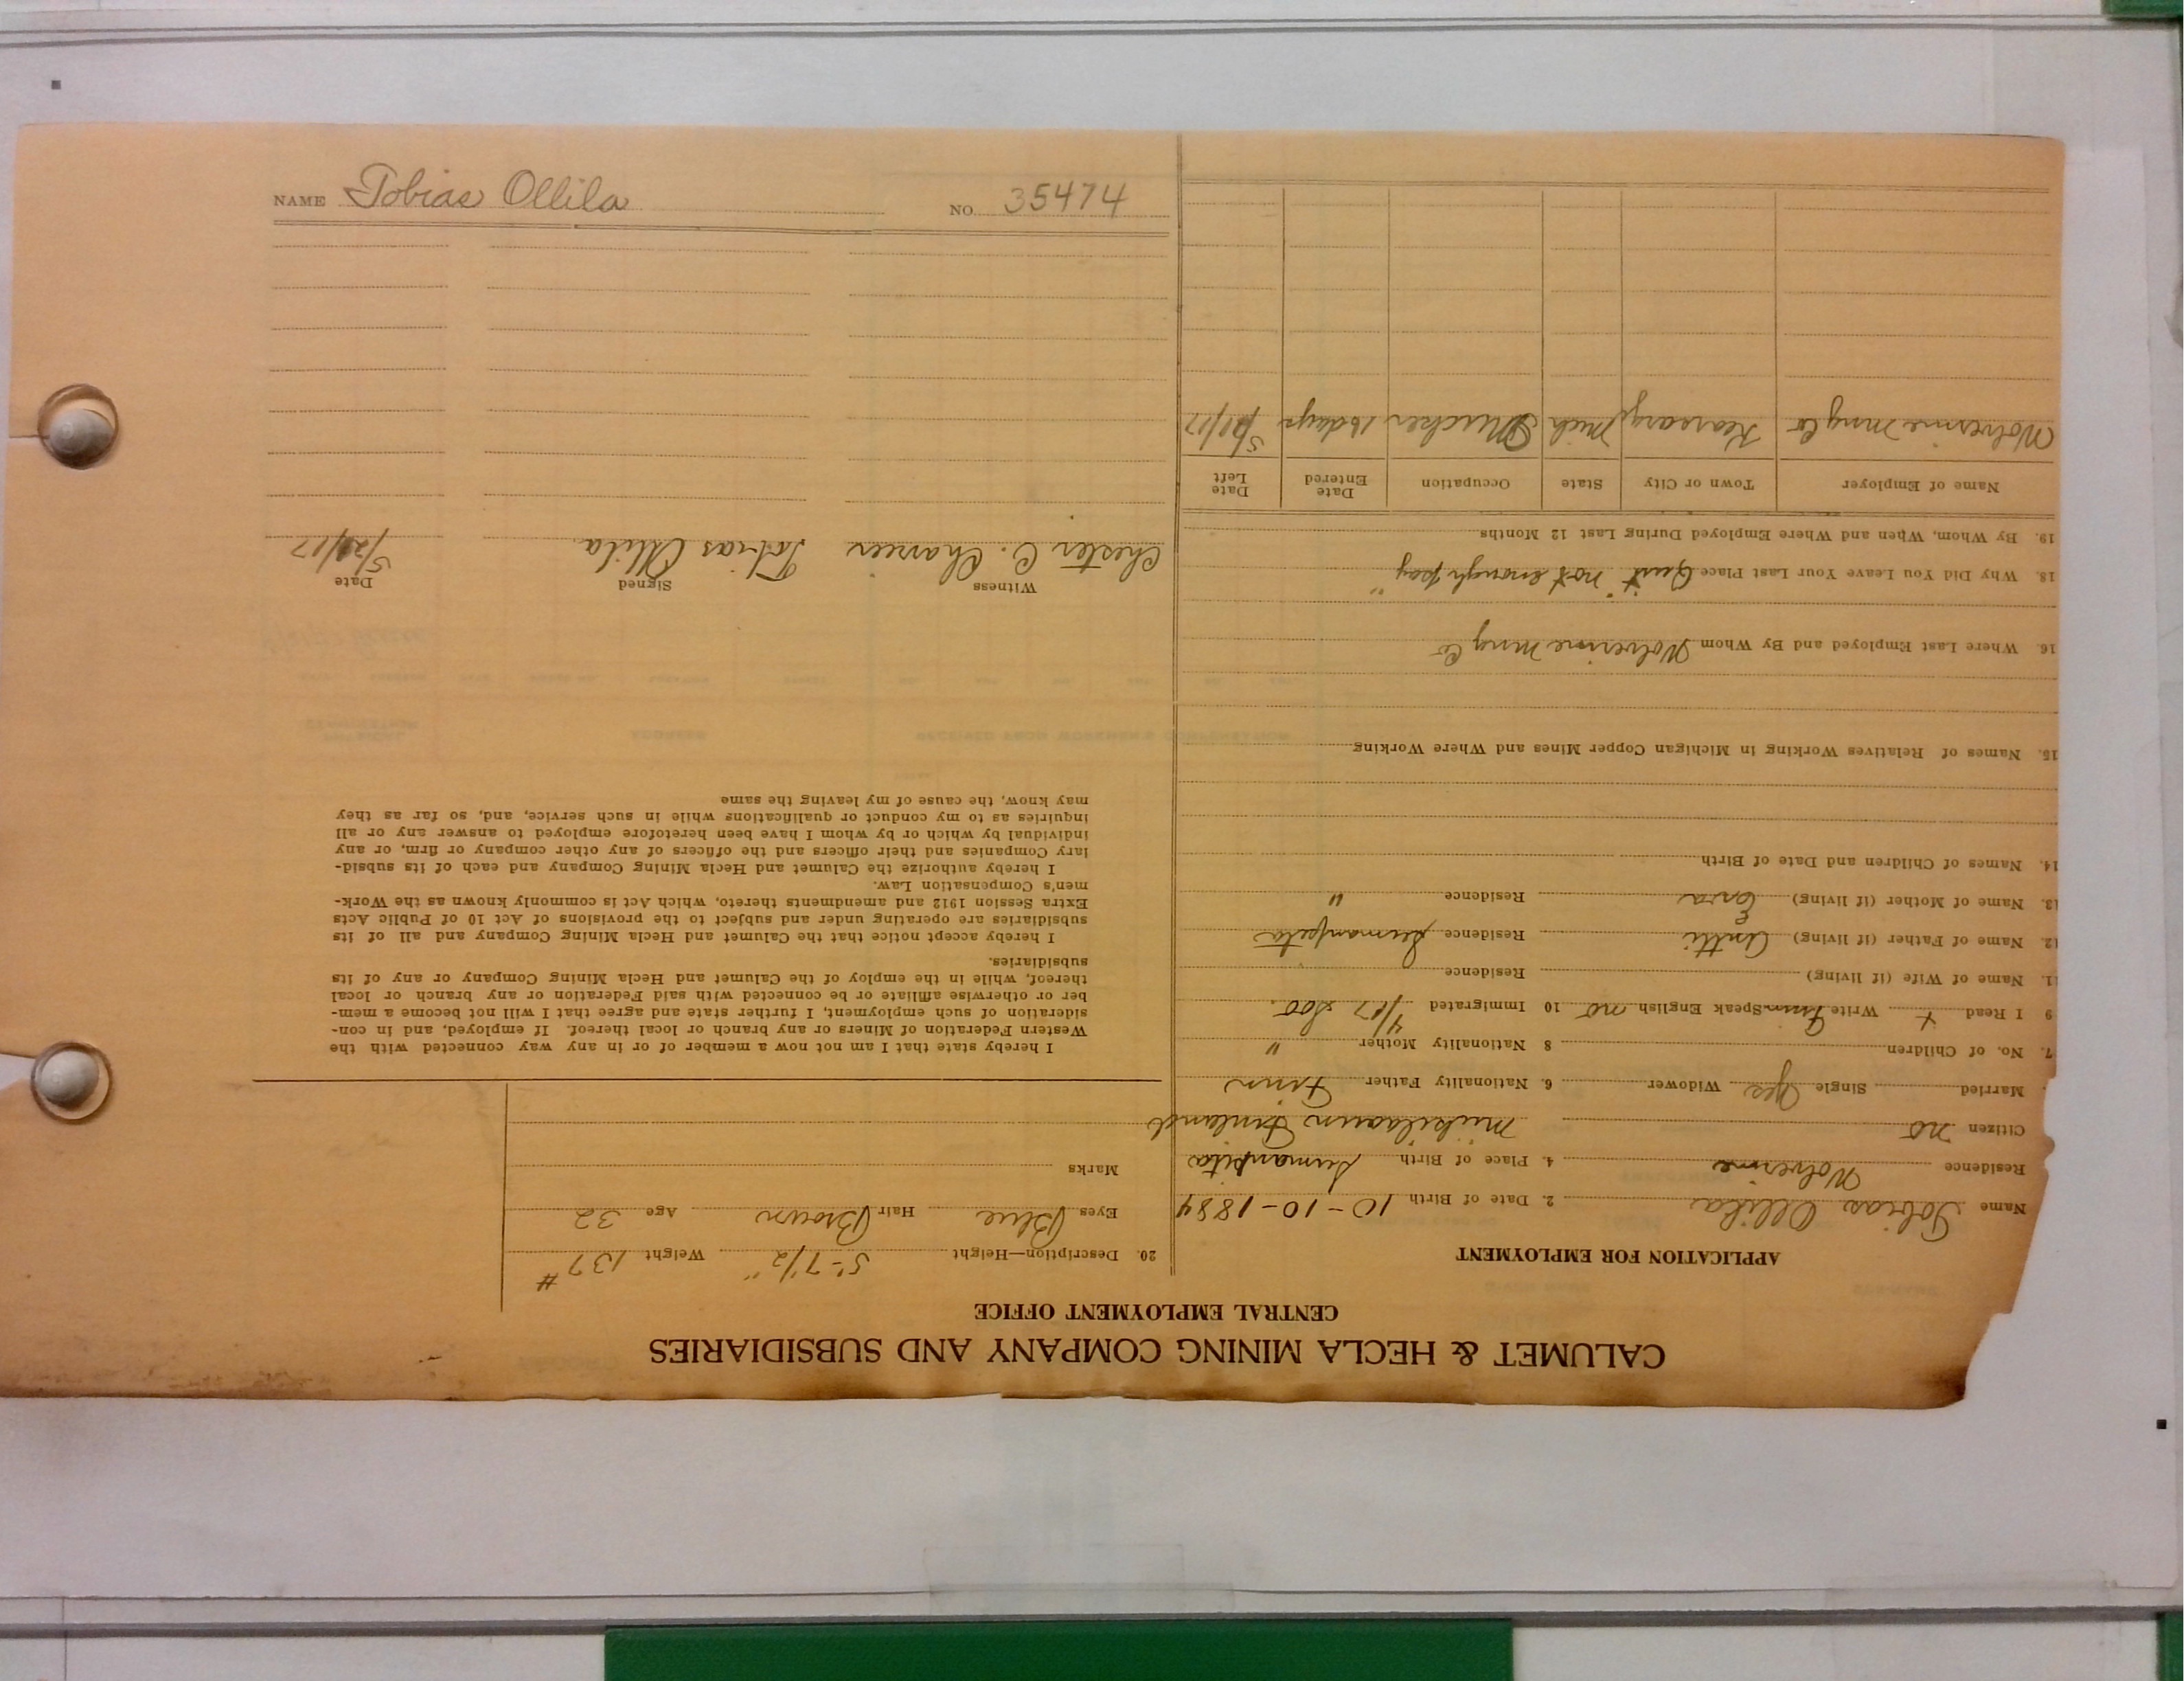 CALUMET & HECLA MINING COMPANY AND SUBSIDIARIES
CENTRAL EMPLOYMENT OFFICE
APPLICATION FOR EMPLOYMENT
Name Tobias Ollila 2. Date of Birth 10-10-1884
Residence Wolverine 4. Place of Birth
Citizen no Finland
Married Single Yes Widower 6. Nationality Father Finn
7. No. of Children 8 Nationality Mother "
9 I Read + Write Finn Speak English no 10 Immigrated 4/07 Soo.
11. Name of Wife (if living) Residence
12. Name of Father (if living) Antti Residence
13. Name of Mother (if living) Eva Residence "
14. Names of Children and Date of Birth
15. Names of Relatives Working in Michigan Copper Mines and Where Working
16. Where Last Employed and By Whom Wolverine Mng Co
18. Why Did You Leave Your Last Place Quit "not enough pay"
19. By Whom, When and Where Employed During Last 12 Months
Name of Employer Town or City State Occupation Date Entered Date Left
Wolverine Mng Co Kearsarge Mich Mucker days
20. Description—Height 5'-7 1/2" Weight 137 #
Eyes Blue Hair Brown Age 32
Marks
I hereby state that I am not now a member of or in any way connected with the
Western Federation of Miners or any branch or local thereof. If employed, and in con-
sideration of such employment, I further state and agree that I will not become a mem-
ber or otherwise affiliate or be connected with said Federation or any branch or local
thereof, while in the employ of the Calumet and Hecla Mining Company or any of its
subsidiaries.
I hereby accept notice that the Calumet and Hecla Mining Company and all of its
subsidiaries are operating under and subject to the provisions of Act 10 of Public Acts
Extra Session 1912 and amendments thereto, which Act is commonly known as the Work-
men's Compensation Law.
I hereby authorize the Calumet and Hecla Mining Company and each of its subsid-
iary Companies and their officers and the officers of any other company or firm, or any
individual by which or by whom I have been heretofore employed to answer any or all
inquiries as to my conduct or qualifications while in such service, and, so far as they
may know, the cause of my leaving the same
Witness Signed Date
Chester C. Tobias Ollila
NAME Tobias Ollila NO. 35474